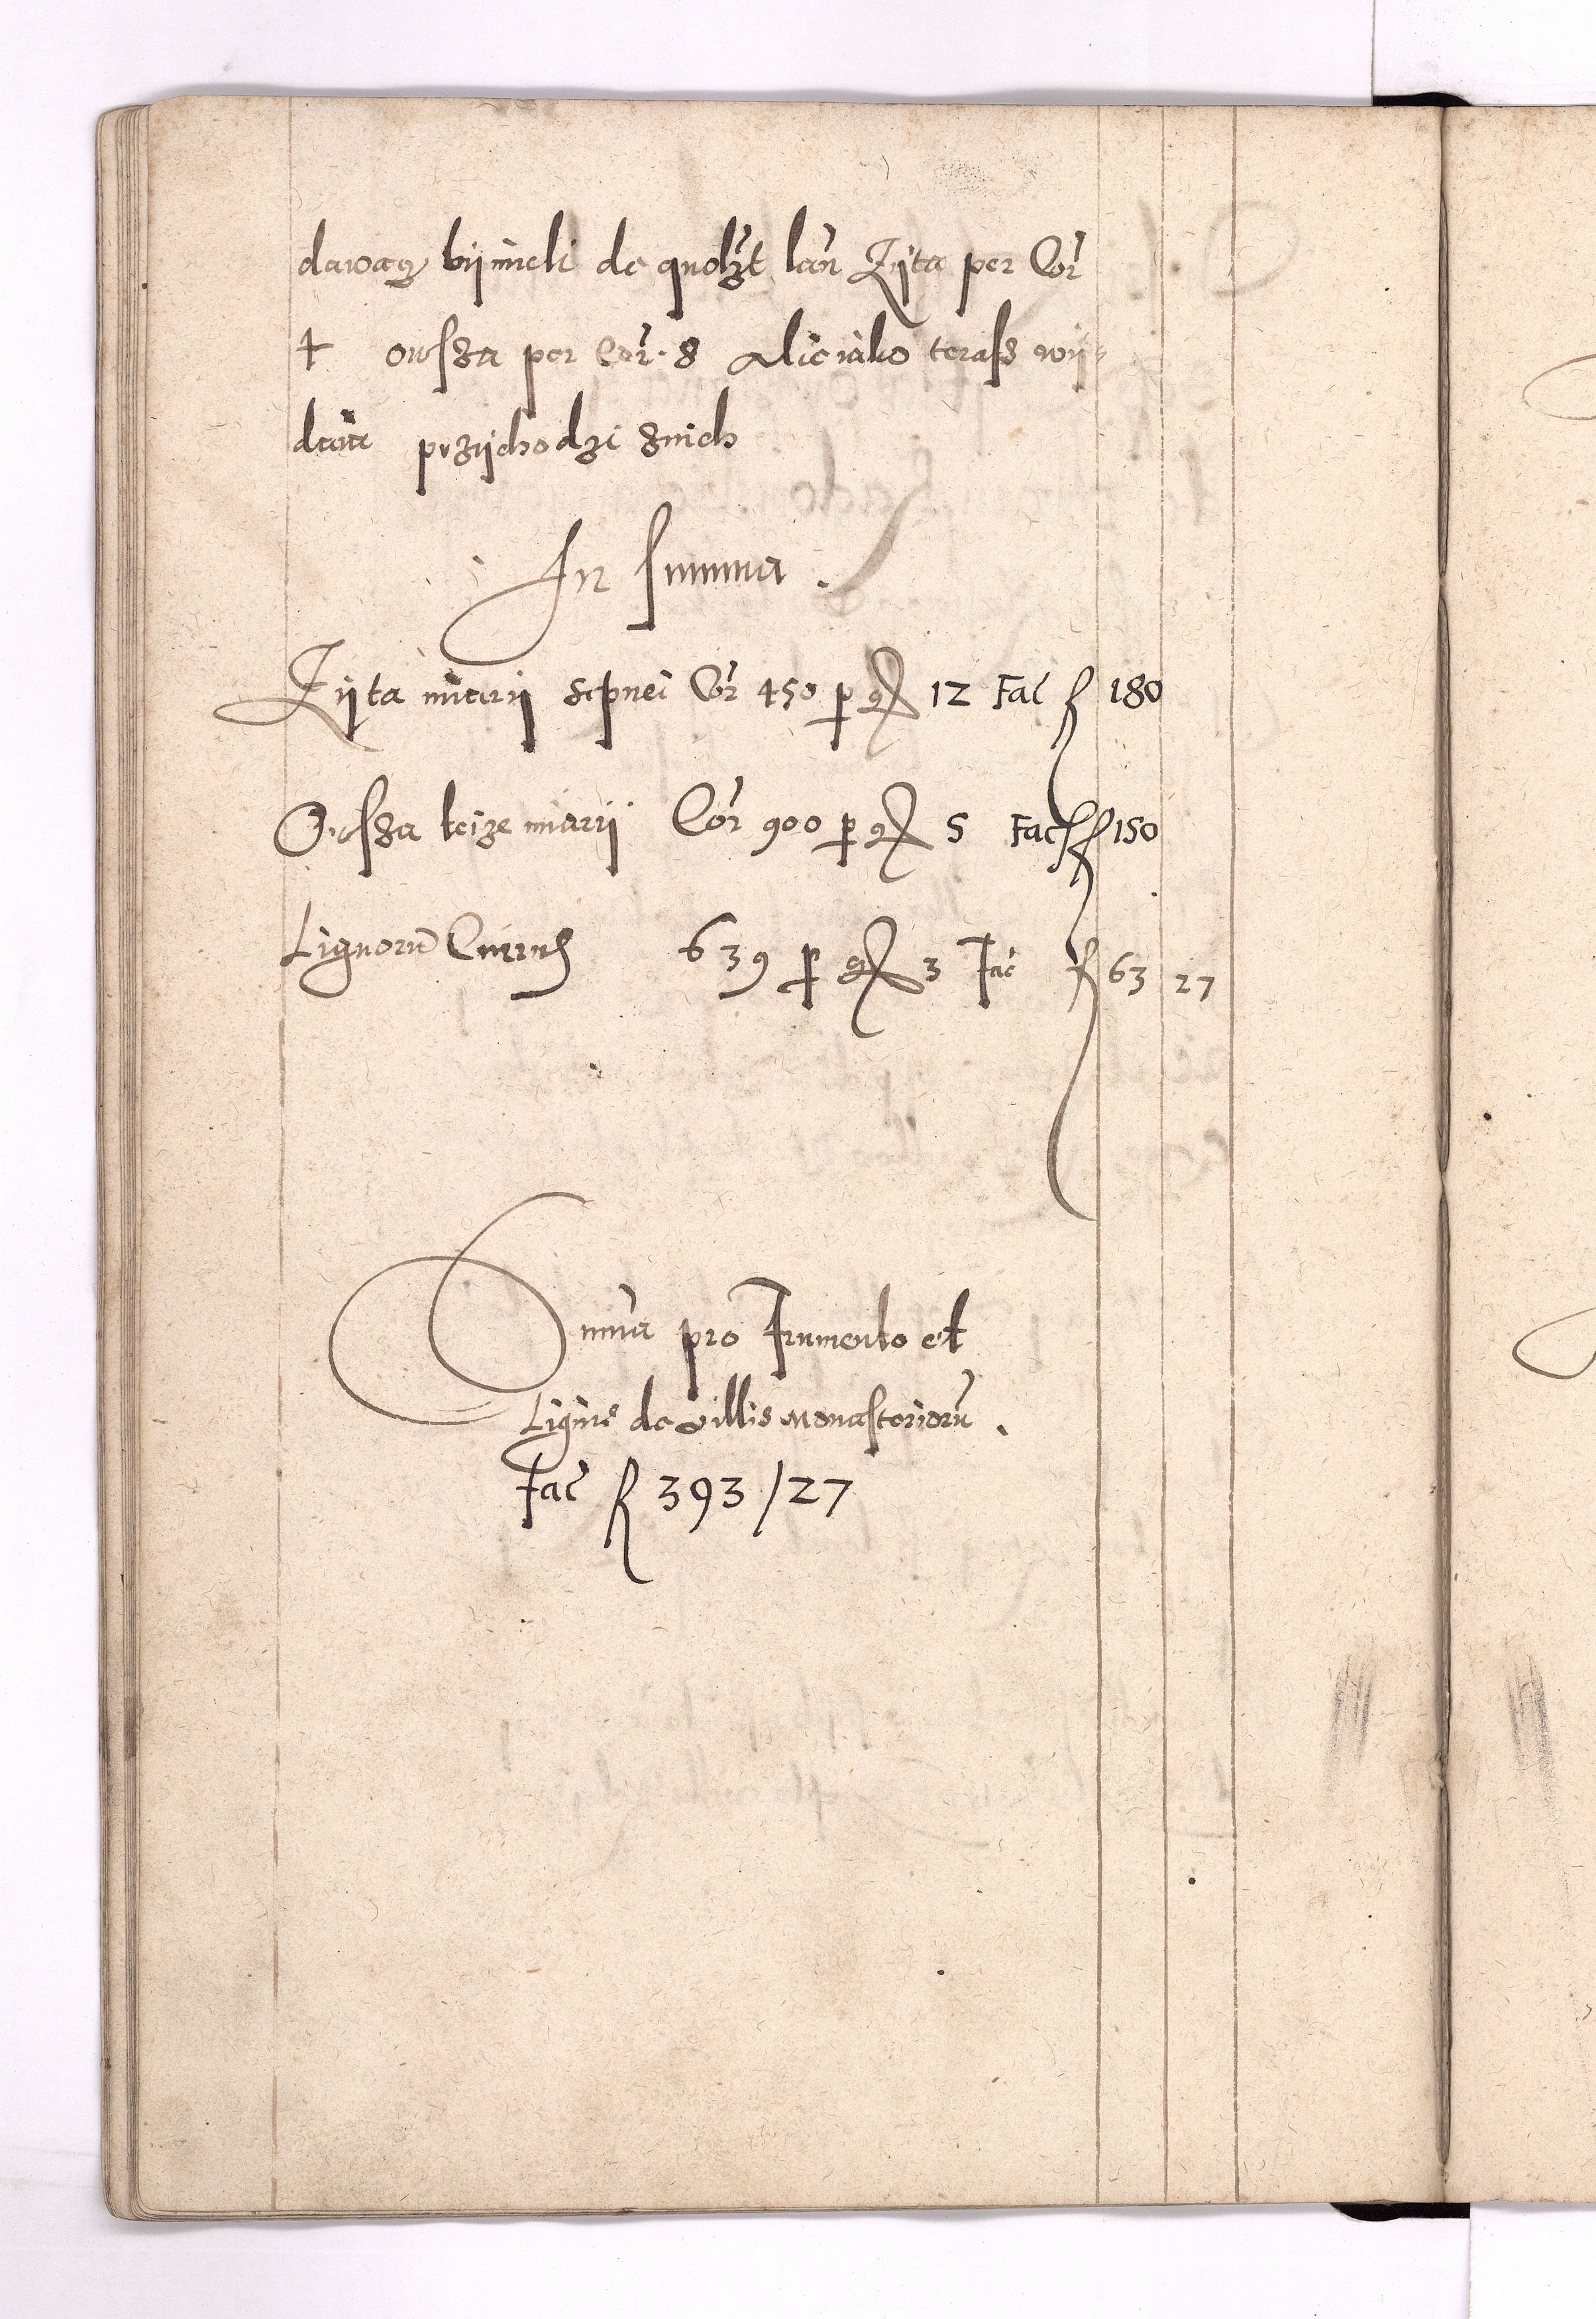 dawacz bÿmeli de quolzt lan Zÿta per Cor
4 owssza per Cor. 8 Alie iako terass wÿ-
dana przÿchodzi znich
In summa.
Zÿta miarÿ sepnei Cor 450 p gr 12 Fac fl 180
Owssza teize miarÿ Cor 900 p gr 5 Fac fl 150
Lignorum Currus 639 p gr 3 Fac fl 63 27
Summa pro Frumento et
Lignis de villis Monasteriorum.
Fac fl 393/27